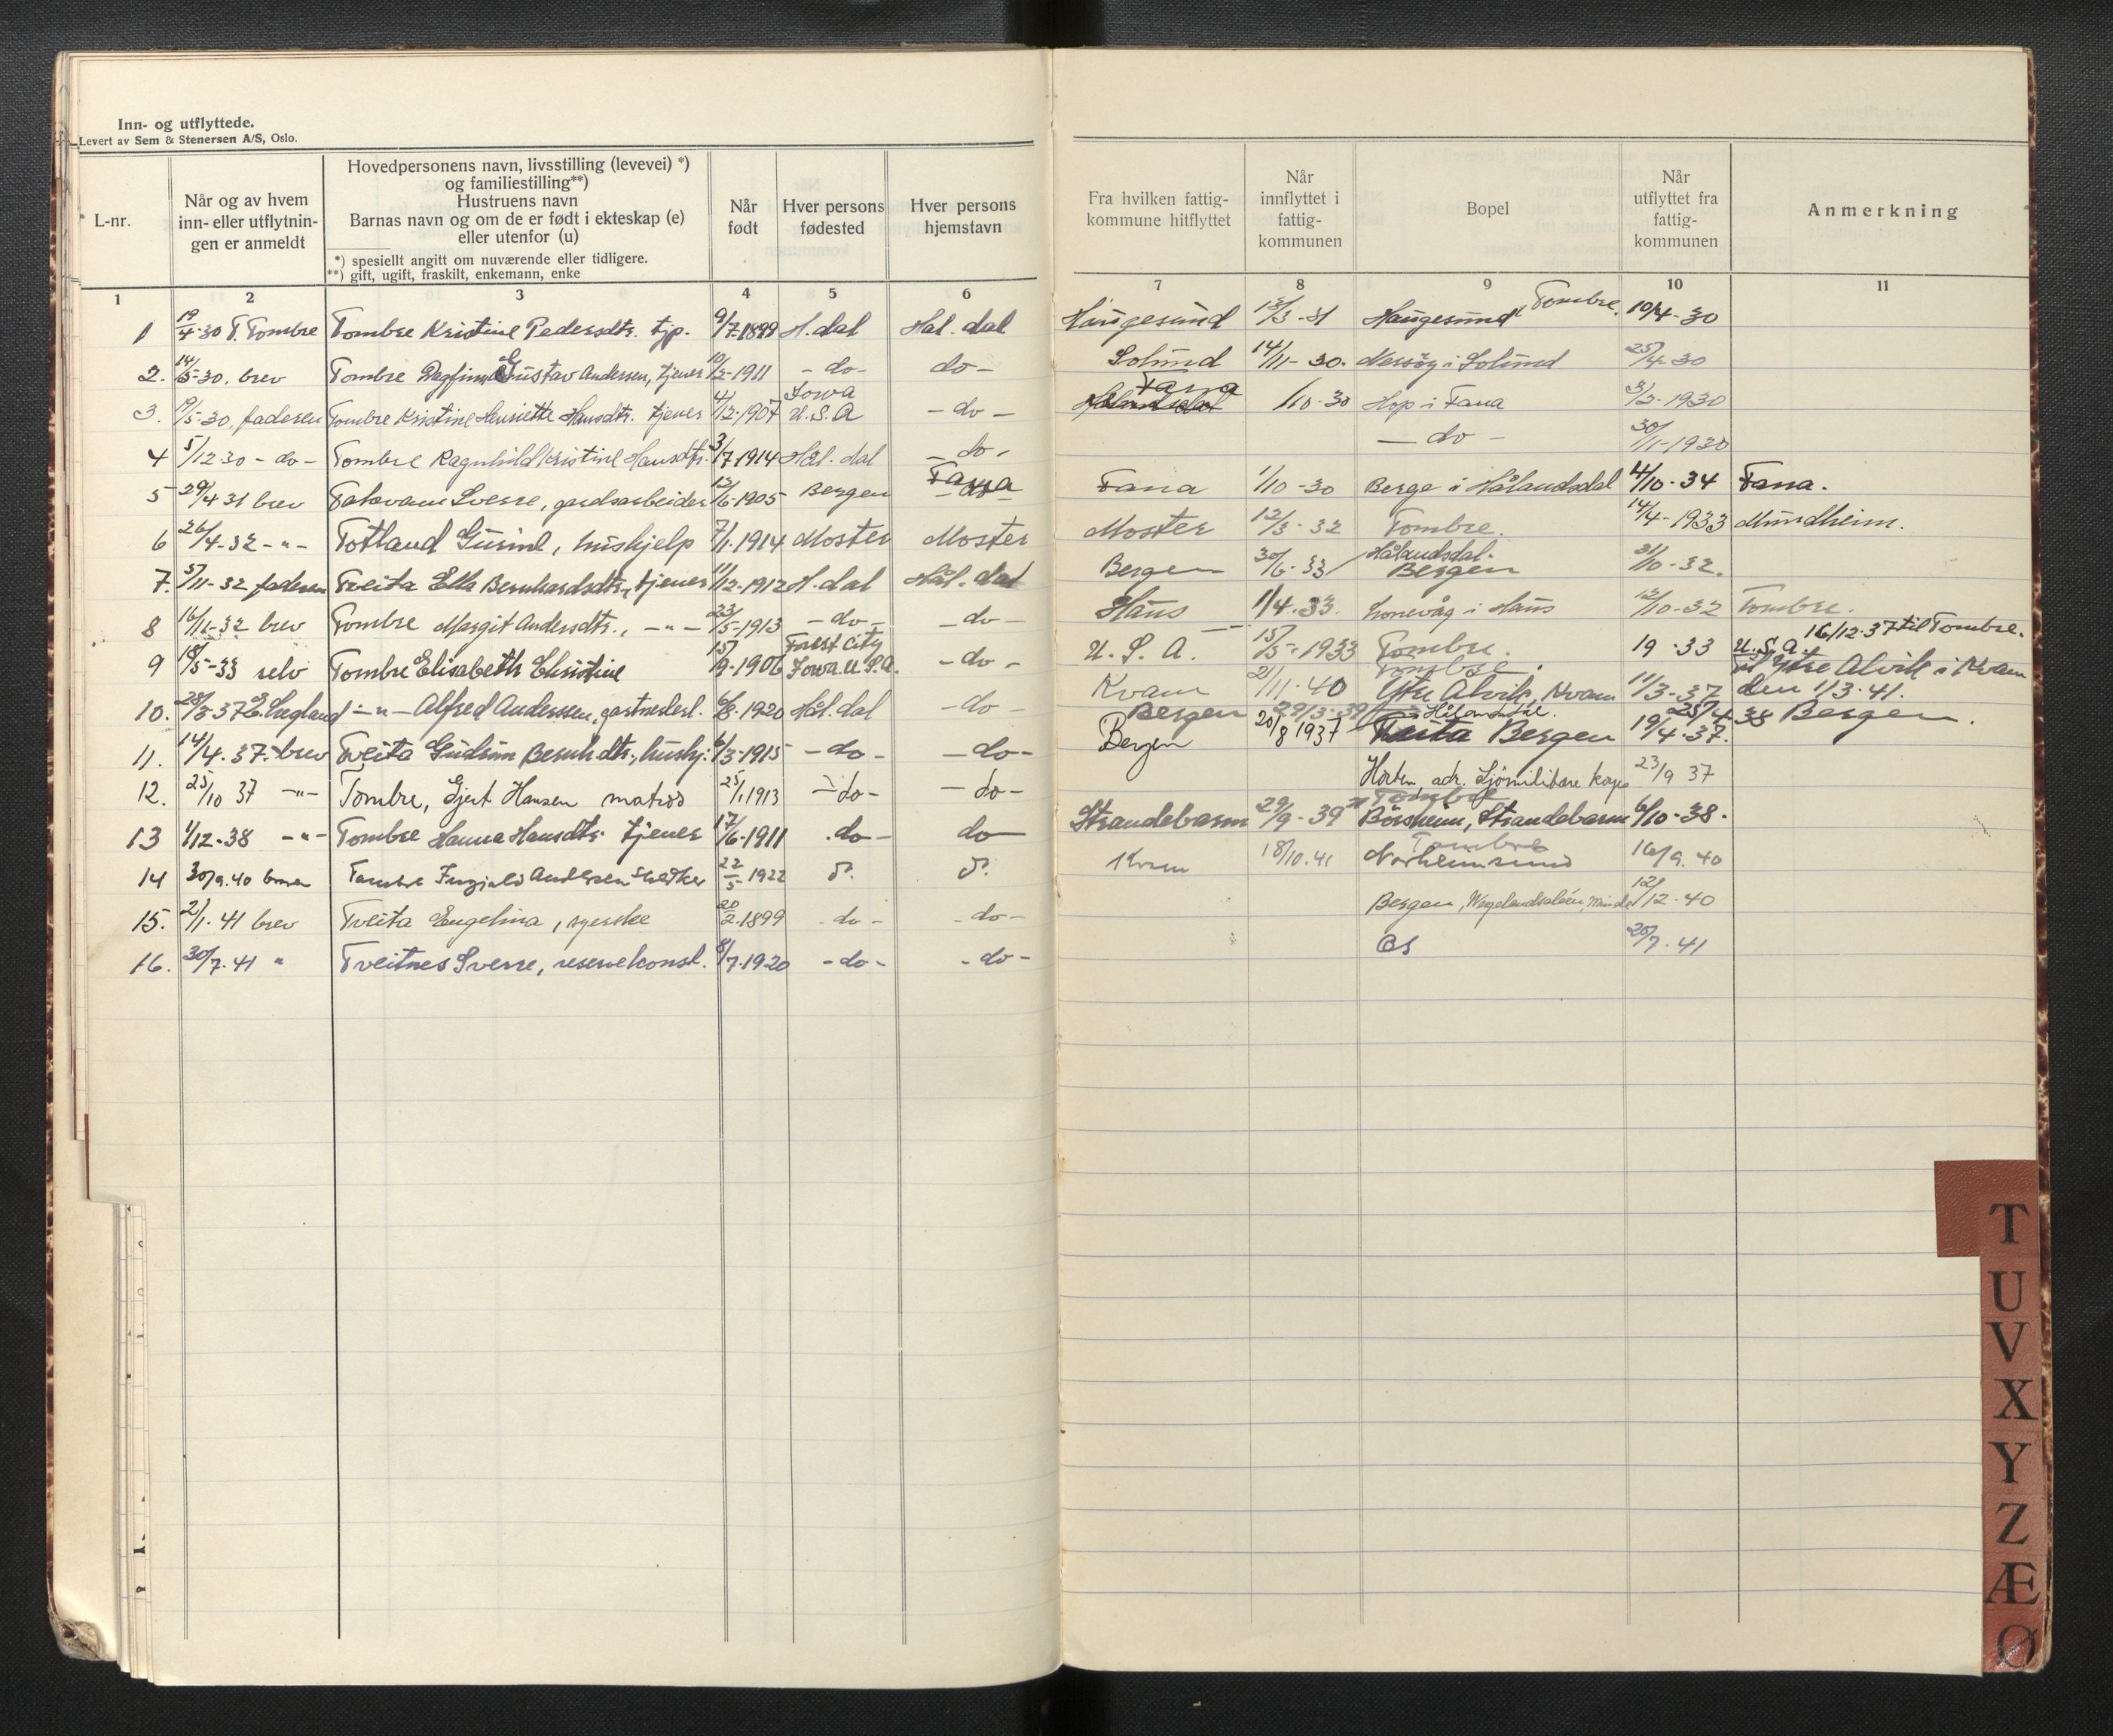 Inn- og utflyttede.
Levert av Sem & Stenersen A/S, Oslo.
L-nr.
Når og av hvem
inn- eller utflytnin-
gen er anmeldt
Hovedpersonens navn, livsstilling (levevei) *)
og familiestilling**)
Hustruens navn
Barnas navn og om de er født i ekteskap (e)
eller utenfor (u)
*) spesiellt angitt om nuværende eller tidligere.
**) gift, ugift, fraskilt, enkemann, enke
Når
født
Hver persons
fødested
Hver persons
hjemstavn
Fra hvilken fattig-
kommune hitflyttet
Når
innflyttet i
fattig-
kommunen
Bopel
Når
utflyttet fra
fattig-
kommunen
Anmerkning
1 2 3 4 5 6 7 8 9 10 11
1 19/4-30 T. Tombre Tombre Kristine Pedersdtr. tjp. 9/7.1899 H.dal Hål.dal Haugesund 13/3-31 Haugesund Tombre. 10/4-30
2. 14/5-30. brev Tombre Dagfinn Gustav Andersen, tjener 10/2-1911 - do- do- Solund 14/11-30. i Solund 25/4-30
3. 19/5-30. faderen Tombre Kristine Henriette Hansdtr. tjener 4/12-1907 Iowa U.S.A - do - Fana 1/10-30 Hop i Fana 3/5-1930
4 5/12 30 - do - Tombre Ragnhild Kristine Hansdtr. 3/7-1914 Hål.dal - do - - do - 30/11-1930
5 29/4 31 brev Sverre, gardsarbeider 12/6-1905 Bergen Fana Fana 1/10-30 Berge i Hålandsdal 4/10-34 Fana.
6 26/4-32 -"- Totland Gurine, hushjelp 7/1.1914 Moster Moster Moster 12/3-32 Tombre. 14/4-1933 Mundheim.
7. 5/11-32 faderen Tveita Ella Bernhardsdtr., tjener 11/12-1912 H.dal Hål.dal Bergen 30/6-33 Hålandsdal. Bergen 31/10-32.
8 16/11-32 brev Tombre Margit Andersdtr., -"- 23/5-1913 - do - - do - Haus 1/4.33. Lonevåg i Haus 12/10-32 Tombre.
9 18/5-33 selv Tombre Elisabeth Christine 15/9-1906 Forest City Iowa U.S.A. - do - U.S.A. 15/5-1933 Tombre. 19 -33 U.S.A. 16/12.37 til Tombre.
10. 28/5-37 -"- Alfred Anderssen, gartnerlærl. 6/8-1920 Hål.dal - do - Kvam 2/11-40 Tombre. Ytre Alvik, Kvam 11/3-37 til Ytre Alvik i Kvam den 1/3.41.
11. 14/4.37. brev Tveita Gudrun Bernhdtr., hushj. 6/3-1915 - do - - do - Bergen 29/3-39 Hålandsdal. 25/4 38 Bergen.
Bergen 20/8 1937 Bergen 19/4-37.
12. 25/10 37 -"- Tombre, Gjert Hansen matros 25/1 1913 - do - - do - Horten, adr. Sjömilitære korps 23/9 37
13 1/12-38 -"- Tombre Hanna Hansdtr. tjener 17/6-1911 - do - do Strandebarm 29/9-39 Tombre Börsheim, Strandebarm 6/10-38.
14 30/9.40 Tombre Ingjald Andersen snedker 22/5 1922 do. do. Kvam 18/10.41 Tombre Norheimsund 16/9.40
15. 2/1.41 brev Tveita Engelina, syerske 20/2.1899 - do - - do - Bergen, Minde 12/12-40
16. 30/7.41 " Tveitnes Sverre, reservekonst. 8/7.1920 - do - - do - OS 20/7.41
T
U
V
X
Y
Z
Æ
Ø